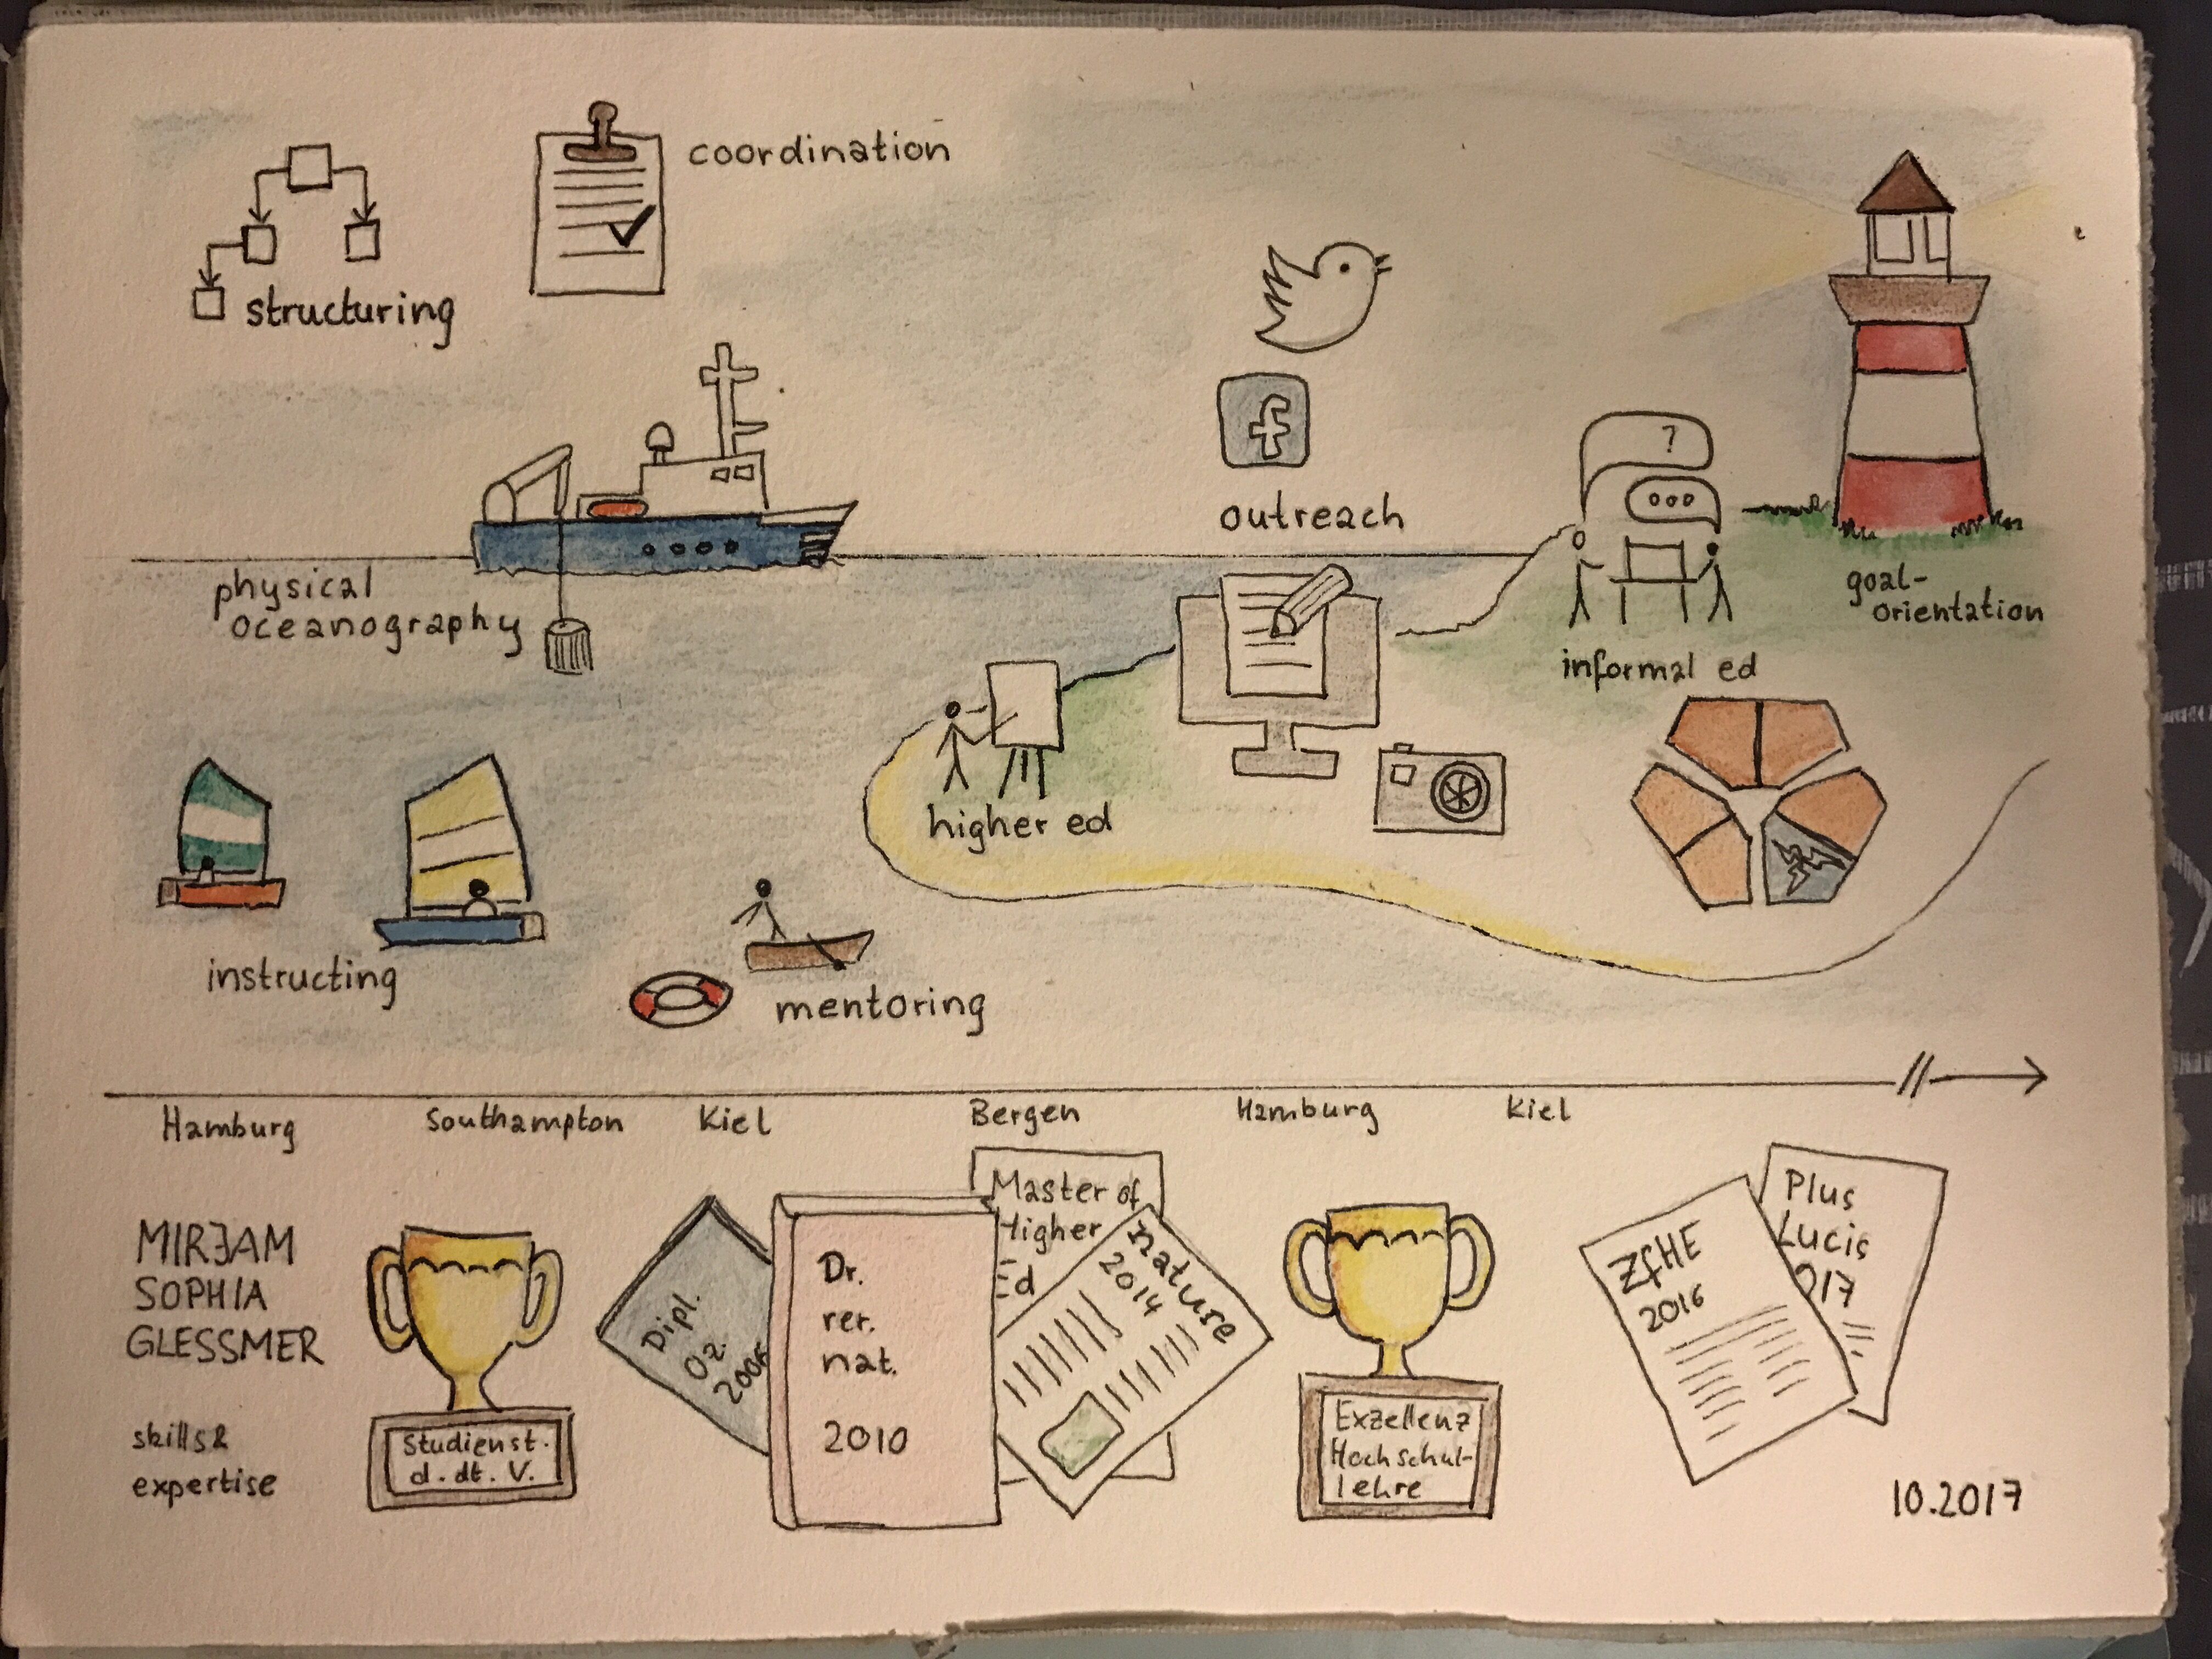 coordination
structuring
outreach
?
goal-
orientation
physical
oceanography
informal ed
higher ed
instructing
mentoring
Hamburg
Southampton
Kiel
Bergen
Hamburg
Kiel
MIRJAM
SOPHIA
GLESSMER
skills &
expertise
Studienst.
d. dt. V.
Dipl.
Oz.
2006
Dr.
rer.
nat.
2010
Master of
Higher
Ed
nature
2014
Exzellenz
Hochschul-
lehre
ZfHE
2016
Plus
Lucis
017
10.2017